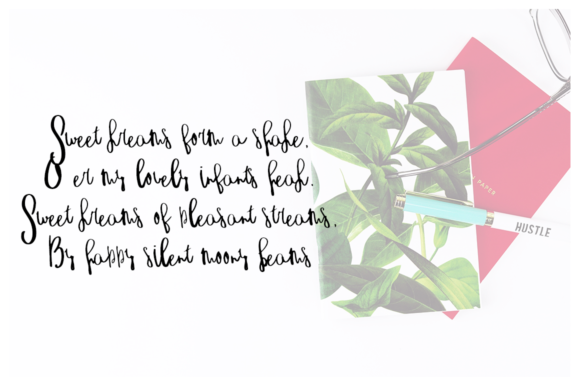 Sweet dreams form a shade,
O er my lovely infants head.
Sweet dreams of pleasant streams,
By happy silent moony beams
PAPER
HUSTLE